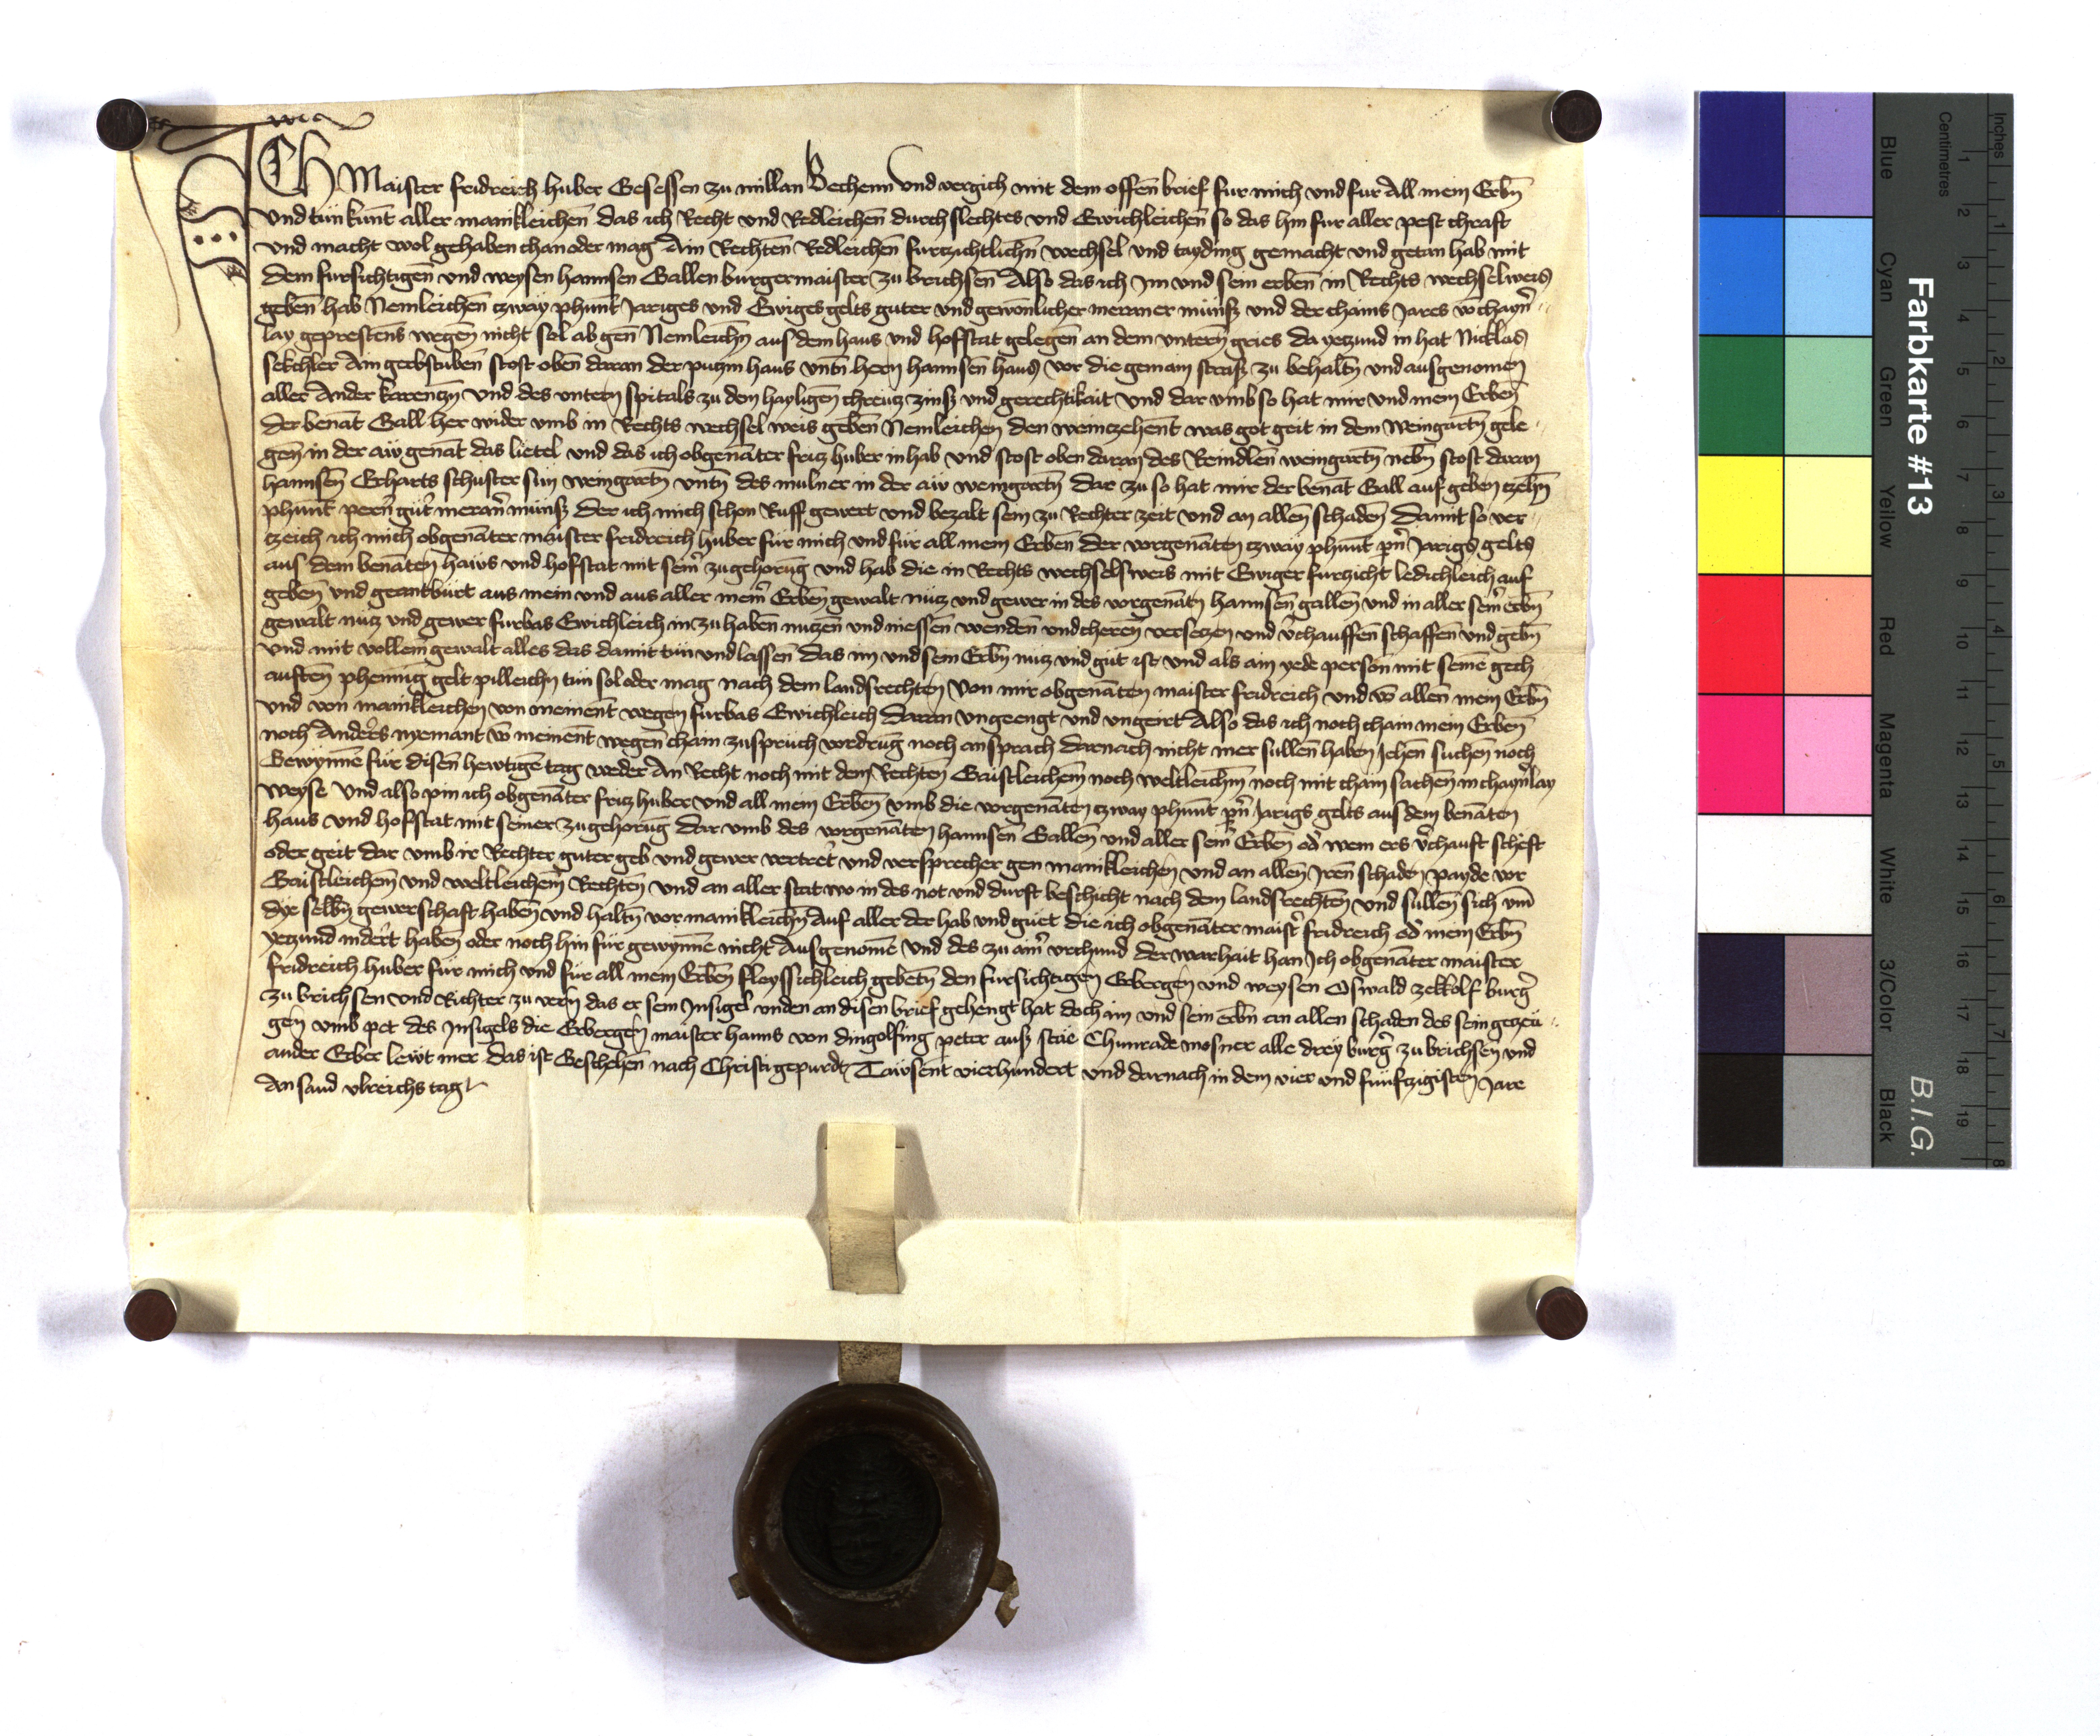 ICH Maister fridreich huber Gesessen zu millan Bechenn Und vergich mit dem offen brief fur mich vnd fur All mein Erbn̄
Vnd tun kunt aller manikleichen das ich Recht vnd Redleichen durch slechtes vnd Ewichleichen so das hin fur aller pest chraft
Vnd macht wol gehaben chan oder mag Ain Rechten Redleichen furtzichtlichn̄ wechsel vnd tayding gemacht vnd getan hab mit
dem fursichtigen vnd weysen hannsen Gallen burgermaister zu brichsen Also das ich Im vnd sein erben in Rechts wechselweis
geben hab Nemleichen tzway phunt Jariges vnd Ewiges gelts guter vnd gewonlicher meraner munss vnd der chains Jares vō chayn̄
lay geprestens wegen nicht sol ab gen Nemleichn̄ aus dem haus vnd hoffstat gelegen an dem vntern gries da yetzund in hat Nicklas
sekchler Ain gerbstuben stost oben daran der putzin haus vntn̄ hern hannsen haus vor die gemain strass zu behaltn̄ vnd ausgenomen
aller Ander karentzn̄ Vnd des vntern spitals zu dem hayligen chreutz zinss vnd gerechtikait Vnd dar vmb so hat mir vnd mein Erben
der benāt Gall her wider vmb in Rechts wechsel weis geben Nemleichen den weintzehent was got geit in dem Weingartn̄ gele
gen in der aw genāt das lietel vnd das ich obgenāter fritz huber in hab Vnd stost oben daran des Reindlen weingartn̄ nebn̄ stost daran
hannsen Erharts schuster sun weingartn̄ vntn̄ des mulner in der aw weingartn̄ Dar zu so hat mir der benāt Gall auf geben tzehn̄
phunt pern̄ gut̄ meran̄ munss Der ich mich schon Ruff gewert vnd bezalt sein zu Rechter zeit Vnd an allen schaden Damit so ver
tzeich ich mich obgenāter maister fridreich huber für mich vnd für all mein Erben Der vorgenāten tzway phunt pn̄ Jarigs gelts
aus dem benāten haws vnd hofstat mit sein̄ zugehorūg Vnd hab die in Rechts wechselsweis mit Ewiger furtzicht ledichleich auf
geben Vnd geantburt aus mein vnd aus aller mein̄ Erben gewalt nutz vnd gewer in des vorgenātn̄ hannsen gallen vnd in aller sein̄ erbn̄
gewalt nutz vnd gewer furbas Ewichleich in zu haben nutzen vnd niessen wenden vnd cheren versetzen vnd v̄chauffen schaffen vnd gebn̄
Vnd mit vollem gewalt alles das damit tun vnd lassen Das im vnd sein Erbn̄ nutz vnd gut ist Vnd als ain yede person mit seinē gech
auften phennig gelt pilleichn̄ tun sol oder mag nach dem landsrechten Von mir obgenāten maister fridreich vnd vō allen mein Erbn̄
Vnd von manikleichen von niement wegen furbas Ewichleich daran vngeengt vnd vngeirt Also das ich noch chain mein Erben
noch Anders nyemant vō niement wegen chain zuspruch vordrug noch ansprach darnach nicht mer sullen haben Jehen suchen noch
Gewynnē für disen hewtigē tag weder An Recht noch mit dem Rechten Gaistleichem noch weltleichm̄ noch mit chain sachen in chaynlay
weyse Vnd also pin ich obgenāter fritz huber vnd all mein Erben vmb die vorgenāten tzway phunt pn̄ Jarigs gelts aus dem benāten
haus vnd hofstat mit seiner zugehorūg Dar vmb des vorgenāten hannsen Gallen vnd aller sein̄ Erben od̄ wem ers v̄chauft scheft
oder geit dar vmb ir Rechter guter geb vnd gewer vertret̄ vnd versprecher gen manikleichen vnd an allen Iren schaden payde vor
Gaistleichem vnd weltleichem̄ Rechten vnd an aller stat wo in des not vnd durft beschicht nach dem landsrechten Vnd sullen sich vm̄
dye selbn̄ gewerschaft haben vnd haltn̄ vor manikleichn̄ Auf aller der hab vnd guet die ich obgenāter maist̄ fridreich od̄ mein Erbn̄
yetzund indert haben oder noch hin für gewynnē nicht Ausgenomē Vnd des zu ain̄ vrchund der warhait han Ich obgenāter maister
fridreich huber für mich vnd für all mein Erben fleyssichleich gebetn̄ den fursichtigen Erbergen vnd weysen Oswald zekkolf burḡ
zu brichsen vnd Richter zu vern̄ das er sein Insigel vnden an disen brief gehengt hat doch im vnd sein erbn̄ an allen schaden des sein getzeu
gen vmb pet des Insigels die Erbergen maister hanns von dingolfing peter auss stāe Chunrade mosner alle drey burḡ zu brichsen vnd
ander Erber lewt mer Das ist Geschehen nach Christi gepurdt Tawsent vierhundert vnd darnach in dem vier vnd funftzigisten Jare
An sand vlreichs tag
Farbkarte #13
B.I.G.
Centimetres
Inches
Blue
Cyan
Green
Yellow
Red
Magenta
White
3/Color
Black
1 2 3 4 5 6 7 8 9 10 11 12 13 14 15 16 17 18 19
1 2 3 4 5 6 7 8